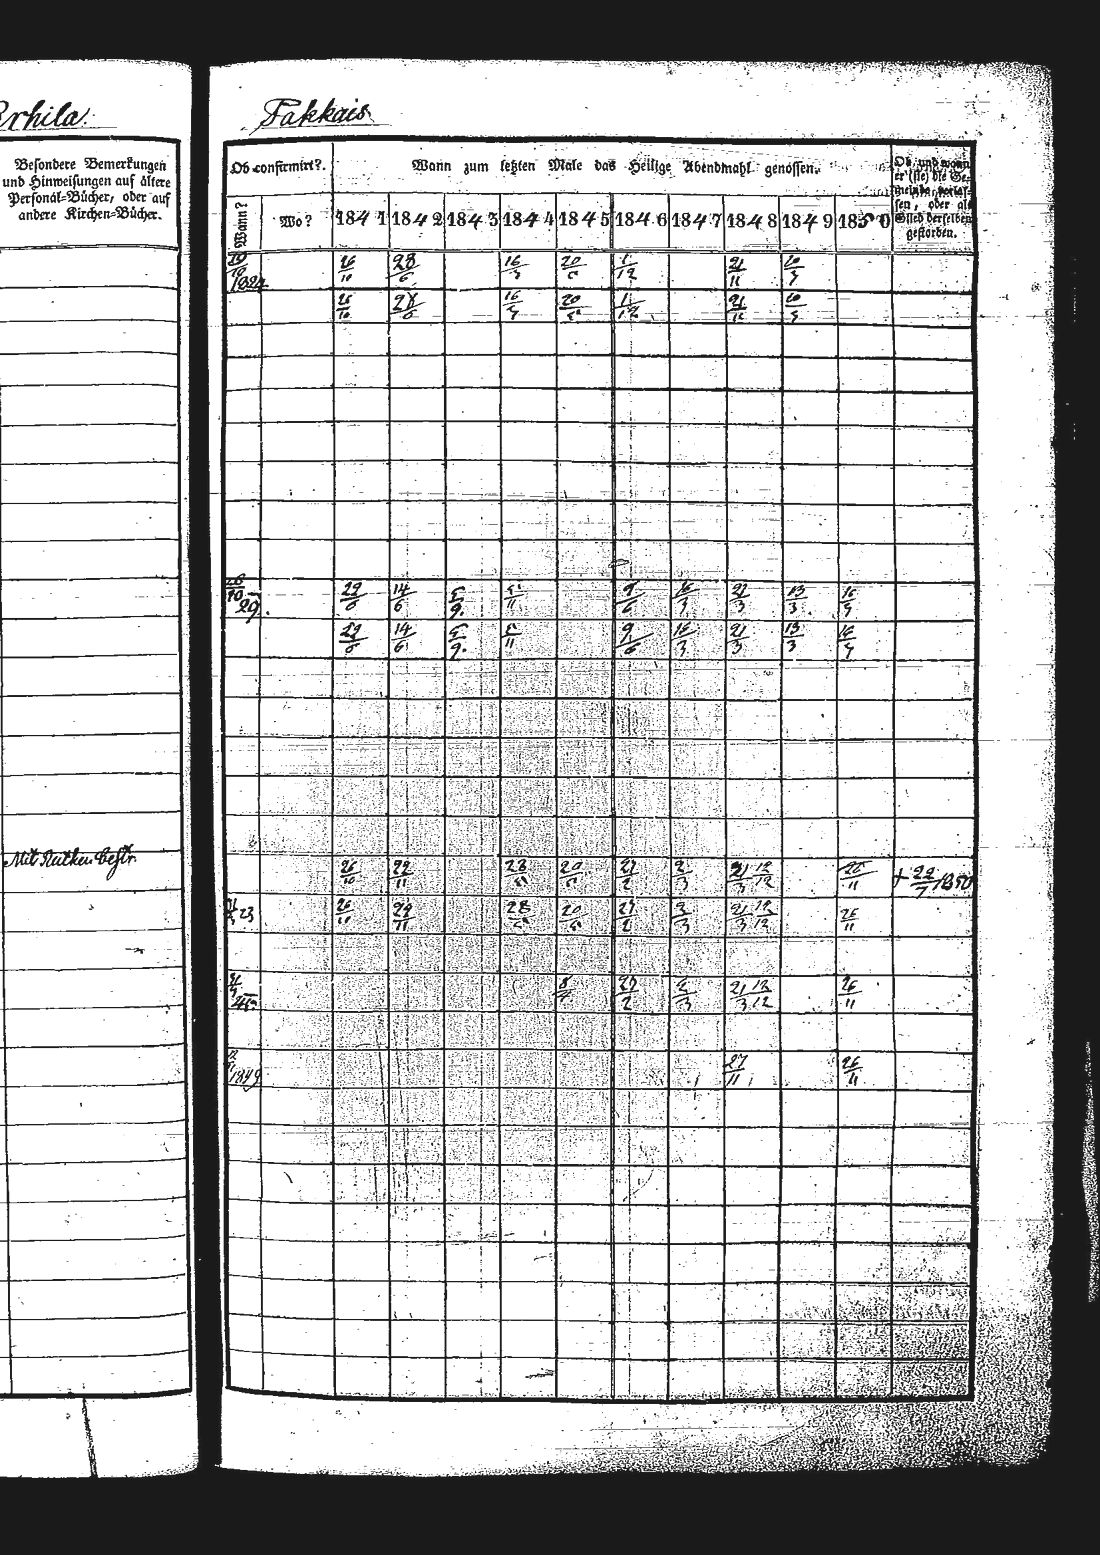 Takkais
Besondere Bemerkungen
und Hinweisungen auf ältere
Personal-Bücher, oder auf
andere Kirchen-Bücher.
Ob confirmirt?
Wann zum letzten Male das Heilige Abendmahl genossen.
Ob und wann
er (sie) die Ge-
meinde verlas-
sen, oder als
Glied derselben
gestorben.
Wann? Wo? 1841 1842 1843 1844 1845 1846 1847 1848 1849 1850
26/10 28/6 16/5 20/5 1/12 21/11 20/5
26/10 28/6 16/5 20/5 1/12 21/11 20/5
29. 29/6 14/6 5/9 5/11 9/6 16/3 21/3 13/3 16/5
29/6 14/6 5/9 5/11 9/6 16/3 21/3 13/3 16/5
Mit
26/10 22/11 28/5 20/5 27/2 2/3 21/3 12/12 26/11 + 22/7 1850
23 26/10 22/11 28/5 20/5 27/2 2/3 21/3 12/12 26/11
45. 8/7 27/2 2/3 21/3 12/12 26/11
1849 27/11 26/11